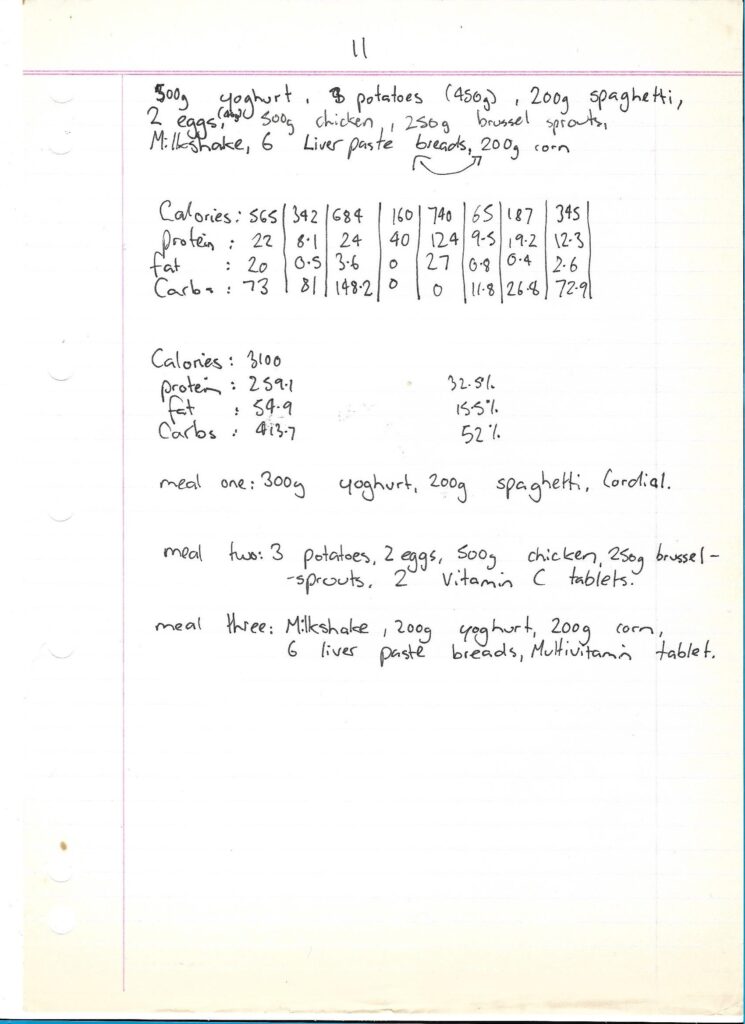 11
500g yoghurt, 3 potatoes (450g), 200g spaghetti,
2 eggs, 500g chicken, 250g brussel sprouts,
Milkshake, 6 Liver paste breads, 200g corn
Calories: 565 | 342 | 684 | 160 | 740 | 65 | 187 | 345 |
protein : 22 | 8.1 | 24 | 40 | 124 | 9.5 | 19.2 | 12.3 |
fat : 20 | 0.5 | 3.6 | 0 | 27 | 0.8 | 0.4 | 2.6 |
Carbs : 73 | 81 | 148.2 | 0 | 0 | 11.8 | 26.8 | 72.9 |
Calories : 3100
protein : 259.1 32.5%
fat : 54.9 15.5%
Carbs : 413.7 52%
meal one: 300g yoghurt, 200g spaghetti, Cordial.
meal two: 3 potatoes, 2 eggs, 500g chicken, 250g brussel-
-sprouts, 2 Vitamin C tablets.
meal three: Milkshake, 200g yoghurt, 200g corn,
6 liver paste breads, Multivitamin tablet.